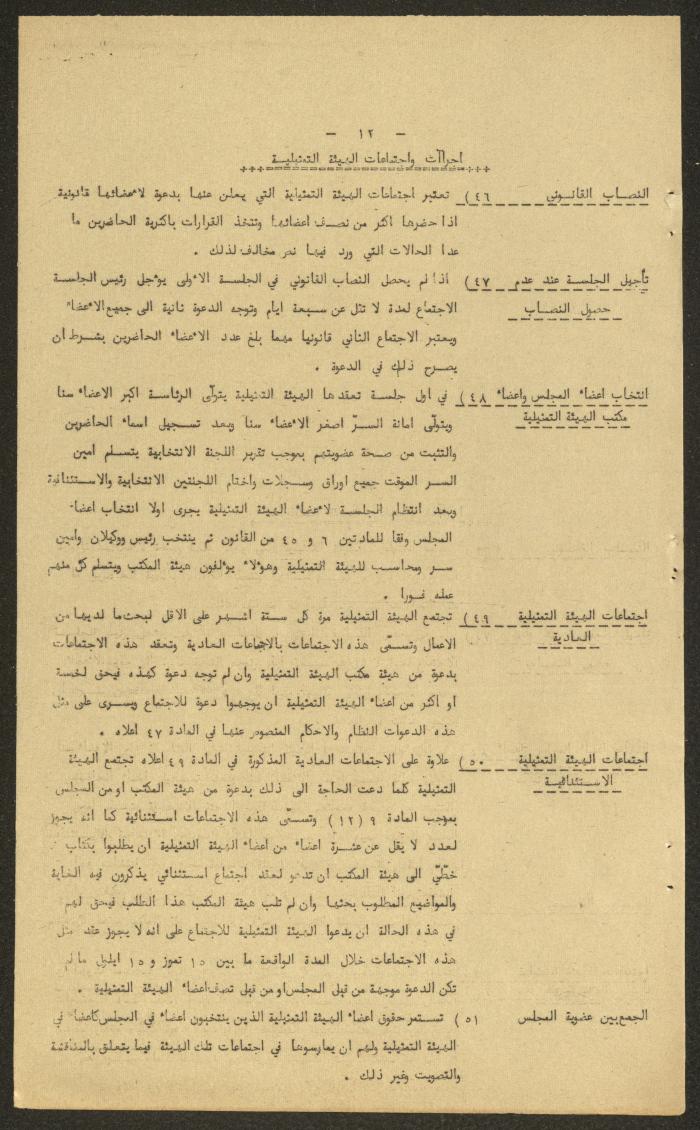 - ١٢ -
اجراآت واجتماعات الهيئة التمثيلية
النصاب القانوني ٤٦) تعتبر اجتماعات الهيئة التمثيلية التي يعلن عنها بدعوة لاعضائها قانونية
اذا حضرها اكثر من نصف اعضائها وتتخذ القرارات باكثرية الحاضرين ما
عدا الحالات التي ورد فيها نص مخالف لذلك .
تأجيل الجلسة عند عدم ٤٧) اذا لم يحصل النصاب القانوني في الجلسة الاولى يؤجل رئيس الجلسة
حصول النصاب الاجتماع لمدة لا تقل عن سبعة ايام وتوجه الدعوة ثانية الى جميع الاعضاء
ويعتبر الاجتماع الثاني قانونيا مهما بلغ عدد الاعضاء الحاضرين بشرط ان
يصرح ذلك في الدعوة .
انتخاب اعضاء المجلس واعضاء ٤٨) في اول جلسة تعقدها الهيئة التمثيلية يتولّى الرئاسة اكبر الاعضاء سنا
مكتب الهيئة التمثيلية ويتولّى امانة السرّ اصغر الاعضاء سنا وبعد تسجيل اسماء الحاضرين
والتثبت من صحة عضويتهم بموجب تقرير اللجنة الانتخابية يتسلم امين
السر الموقت جميع اوراق وسجلات واختام اللجنتين الانتخابية والاستئنافية
وبعد انتظام الجلسة لاعضاء الهيئة التمثيلية يجرى اولا انتخاب اعضاء
المجلس وفقا للمادتين ٦ و ٤٥ من القانون ثم ينتخب رئيس ووكيلان وامين
سر ومحاسب للهيئة التمثيلية وهؤلاء يؤلفون هيئة المكتب ويتسلم كل منهم
عمله فورا .
اجتماعات الهيئة التمثيلية ٤٩) تجتمع الهيئة التمثيلية مرة كل ستة اشهر على الاقل لبحث ما لديها من
العادية الاعمال وتسمّى هذه الاجتماعات بالاجتماعات العادية وتعقد هذه الاجتماعات
بدعوة من هيئة مكتب الهيئة التمثيلية وان لم توجه دعوة كهذه فيحق لخمسة
او اكثر من اعضاء الهيئة التمثيلية ان يوجهوا دعوة للاجتماع ويسرى على مثل
هذه الدعوات النظام والاحكام المنصوص عنها في المادة ٤٧ اعلاه .
اجتماعات الهيئة التمثيلية ٥٠) علاوة على الاجتماعات العادية المذكورة في المادة ٤٩ اعلاه تجتمع الهيئة
الاستثنائية التمثيلية كلما دعت الحاجة الى ذلك بدعوة من هيئة المكتب او من المجلس
بموجب المادة ٩ (١٢) وتسمّى هذه الاجتماعات استثنائية كما انه يجوز
لعدد لا يقل عن عشرة اعضاء من اعضاء الهيئة التمثيلية ان يطلبوا بكتاب
خطّيّ الى هيئة المكتب ان تدعو لعقد اجتماع استثنائي يذكرون فيه الغاية
والمواضيع المطلوب بحثها وان لم تلب هيئة المكتب هذا الطلب فيحق لهم
في هذه الحالة ان يدعوا الهيئة التمثيلية للاجتماع على انه لا يجوز عقد مثل
هذه الاجتماعات خلال المدة الواقعة ما بين ١٥ تموز و ١٥ ايلول ما لم
تكن الدعوة موجهة من قبل المجلس او من قبل نصف اعضاء الهيئة التمثيلية .
الجمع بين عضوية المجلس ٥١) تستمر حقوق اعضاء الهيئة التمثيلية الذين ينتخبون اعضاء في المجلس كاعضاء في
الهيئة التمثيلية ولهم ان يمارسوها في اجتماعات تلك الهيئة فيما يتعلق بالمناقشة
والتصويت وغير ذلك .